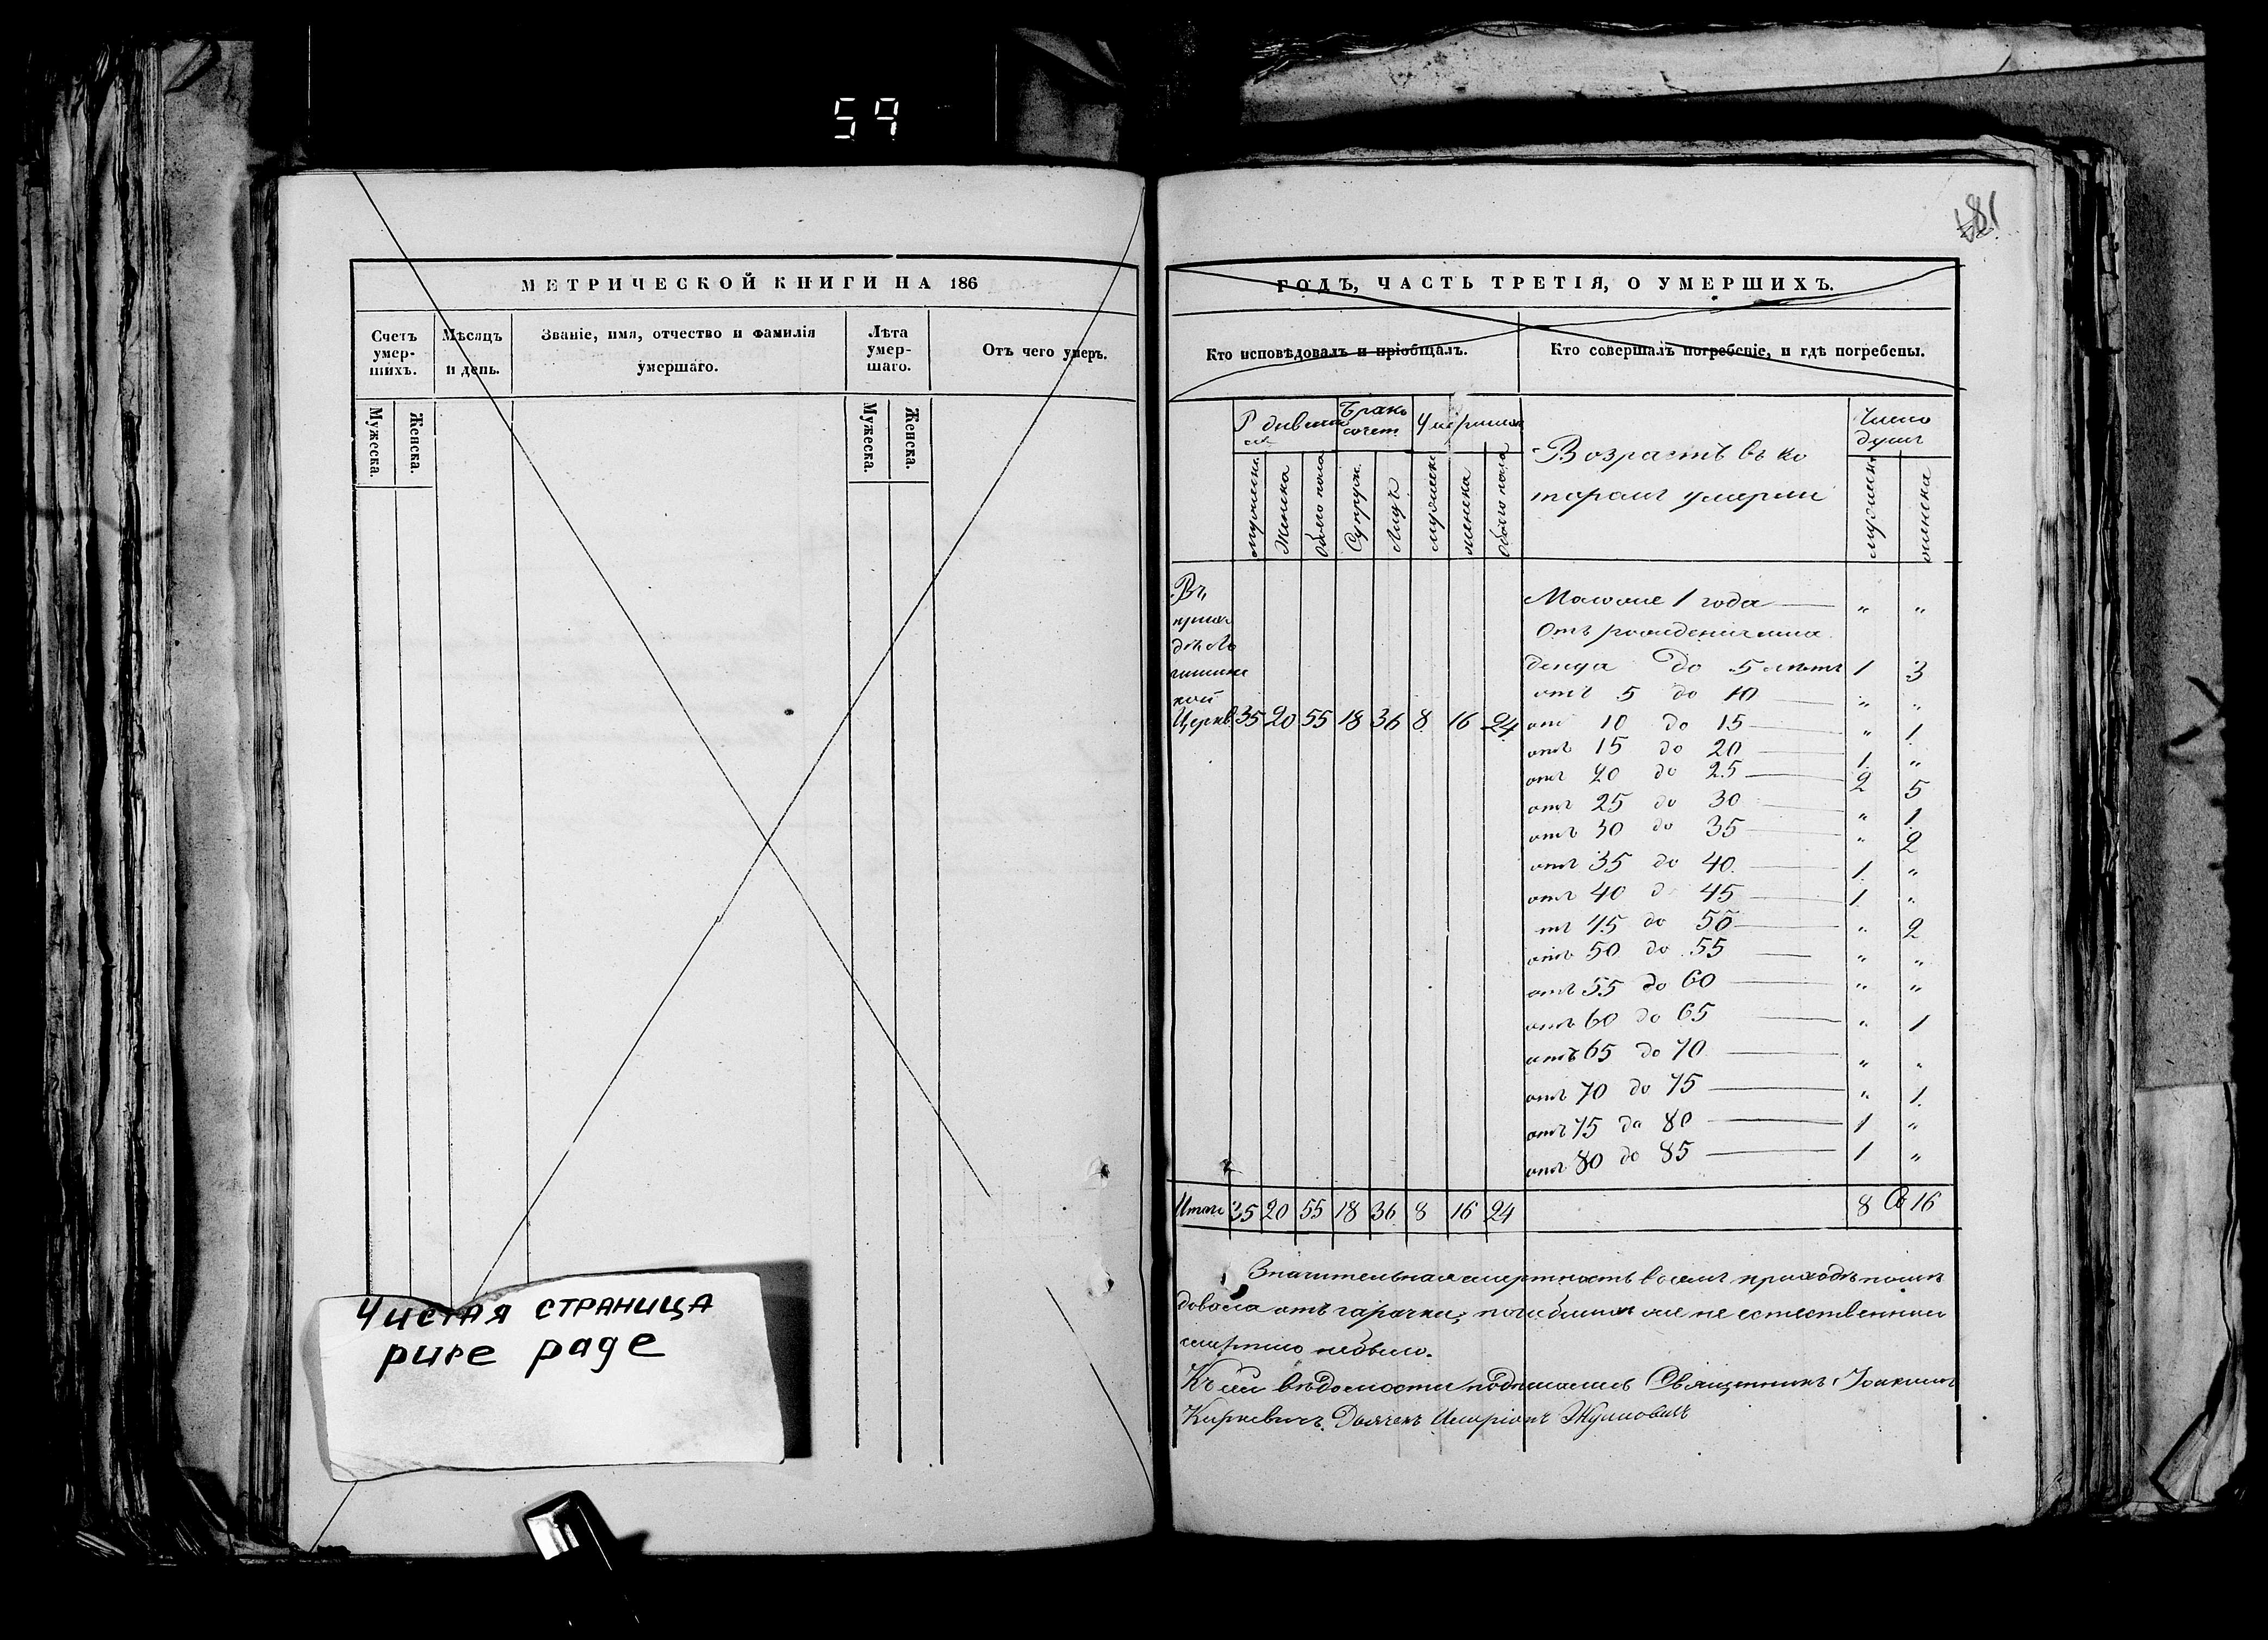 59
181
МЕТРИЧЕСКОЙ КНИГИ НА 186
Счетъ умер-шихъ.
Мѣсяцъ и день.
Званіе, имя, отчество и фамилія умершаго.
Лѣта умер-шаго.
Отъ чего умеръ.
Мужеска.
Женска.
Мужеска.
Женска.
Чистая страница
pure page
ГОДЪ, ЧАСТЬ ТРЕТІЯ, О УМЕРШИХЪ.
Кто исповѣдовалъ и пріобщалъ.
Кто совершалъ погребеніе, и гдѣ погребены.
Бракъ
сочет
Возрастъ въ ко
торомъ умерли
Число
душъ
мужеска
Женска
обоего пола
Супруж.
Лицъ
мужеска
женска
обоего пола
мужеска
женска
Въ
Церкв. 35 20 55 18 36 8 16 24
Моложе 1 года — " "
Отъ рожденія
до 5 лѣтъ 1 3
отъ 5 до 10 — " "
отъ 10 до 15 — " 1
отъ 15 до 20 — 1 "
отъ 20 до 25 — 2 5
отъ 25 до 30 — " 1
отъ 30 до 35 — " 2
отъ 35 до 40 — 1 "
отъ 40 до 45 — 1 "
отъ 45 до 50 — " 2
отъ 50 до 55 — " "
отъ 55 до 60 — " "
отъ 60 до 65 — " 1
отъ 65 до 70 — " "
отъ 70 до 75 — " 1
отъ 75 до 80 — 1 "
отъ 80 до 85 — 1 "
Итого 35 20 55 18 36 8 16 24 8 16
Значительная смертность въ семъ приходѣ послѣ
довала отъ гарачки, погибшихъ же не естественною
смертію небыло.
Къ сей вѣдомости подписались Священникъ Іоакимъ
Киркевичъ Дьячекъ Иларіонъ Жуковичъ